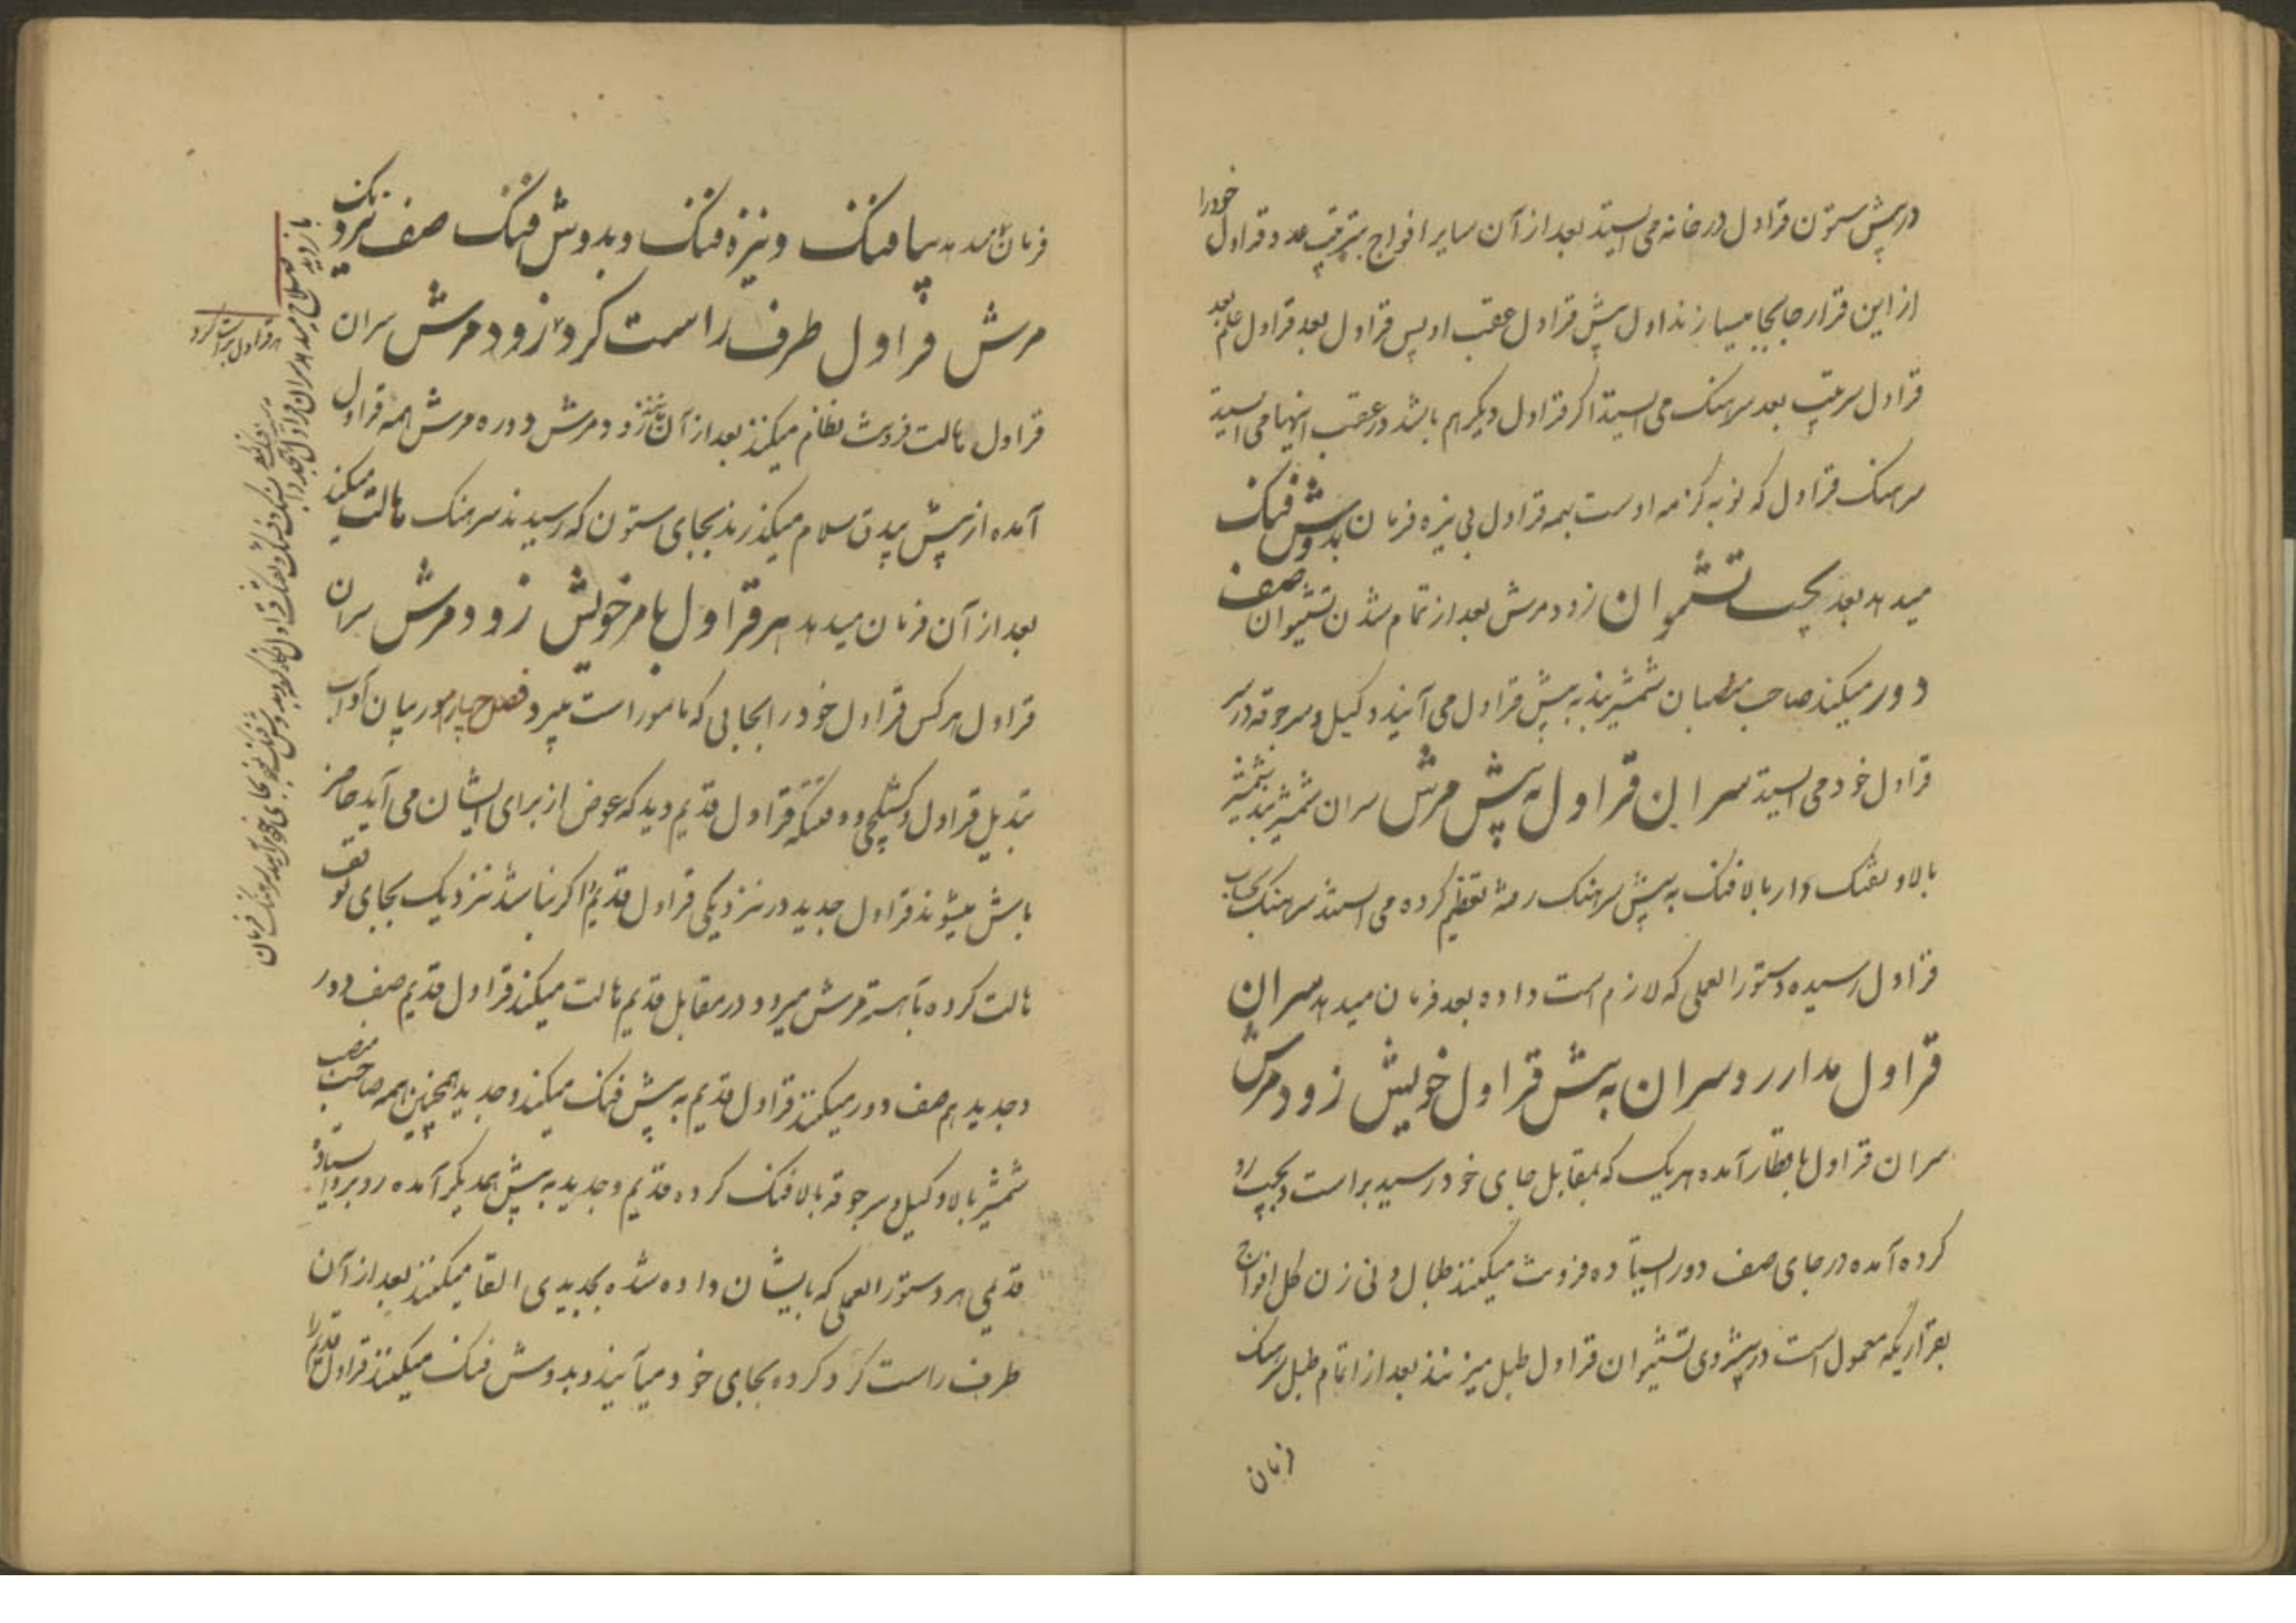 در پیش ستون قراول درخانه می ایستد بعد از آن سایر افواج بترتیب عدد قراول خود را
از این قرار جابجا میسازند اول پیش قراول عقب او پس قراول بعد قراول علم بعد
قراول سرتیپ بعد سرهنک می ایستد اکر قراول دیکر هم باشد در عقب اینها می ایستد
سرهنک قراول که نوبه کزمه اوست بهمه قراول بی نیزه فرمان بدوش فنک
میدهد بعد بچپ تشموان زود مرش بعد از تمام شدن تشموان صف
دور میکند صاحب منصبان شمشیر بند به پیش قراول می آیند وکیل و سرجوقه در سر
قراول خود می ایستد سران قراول به پیش مرش سران شمشیر بند شمشیر
بالا و تفنک دار بالا فنک به پیش سرهنک رفته تعظیم کرده می ایستند سرهنک
قراول رسیده دستورالعملی که لازم است داده بعد فرمان میدهد سران
قراول مدار رو سران به پیش قراول خویش زود مرش
سران قراول با قطار آمده هریک که بمقابل جای خود رسید براست و بچپ رو
کرده آمده در جای صف دور ایستاده فروت میکنند طبال و نی زن کل افواج
بقراریکه معمول است در پیشروی تشیموان قراول طبل میزنند بعد از اتمام طبل سرهنک
فرمان
فرمان میدهد بپا فنک و نیزه فنک و بدوش فنک صف نزدیک
مرش قراول طرف راست کرد زود مرش سران
قراول مالت فروت نظام میکنند بعد از آن زود مرش دوره مرش همه قراول
آمده از پیش بیدق سلام میکذرند بجای ستون که رسیدند سرهنک مالت میکند
بعد از آن فرمان میدهد هر قراول بامر خویش زود مرش سران
قراول هر کس قراول خود را بجایی که مامور است میبرد فصل چهارم در بیان آداب
تبدیل قراول و کشیکچی وقتیکه قراول قدیم دید که عوض از برای ایشان می آید حاضر
باش میشوند قراول جدید در نزدیکی قراول قدیم اکر بنا شد نزدیک بجای توقف
مالت کرده بآهسته مرش میرود در مقابل قدیم مالت میکند قراول قدیم صف دور
و جدید هم صف دور میکنند قراول قدیم به پیش فنک میکند و جدید همچنین همه صاحب منصب
شمشیر بالا وکیل و سرجوقه بالا فنک کرده قدیم و جدید به پیش همدیکر آمده روبرو ایستاده
قدیمی هر دستورالعملی که بایشان داده شده بجدیدی القا میکنند بعد از آن
طرف راست کرد کرده بجای خود میآیند و بدوش فنک میکنند قراول قدیم را